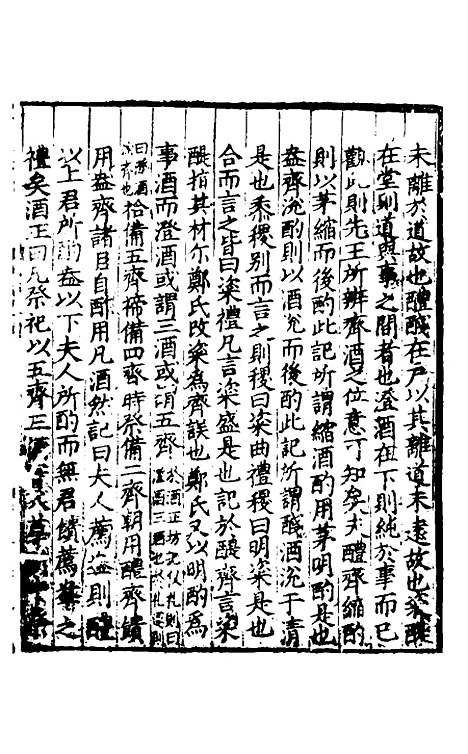 未離於道故也醴醆在戶以其離道未遠故也粢醍
在堂則道與事之間者也澄酒在下則純於事而已
觀此則先王所辨齊酒之位意可知矣夫醴齊縮酌
則以茅縮而後酌此記所謂縮酒酌用茅明酌是也
盎齊涚酌則以酒涚而後酌此記所謂醆酒涚于清
是也黍稷別而言之則稷曰粢曲禮稷曰明粢是也
合而言之皆曰粢禮凡言粢盛是也記於醍齊言粢
醍指其材尓鄭氏改粢為齊誤也鄭氏又以明酌為
事酒而澄酒或謂三酒或謂五齊於酒正坊記
曰澄酒清酒也祫備五齊禘備四齊時祭備二齊朝用醴齊饋
用盎齊諸臣自酢用凡酒然記曰夫人薦盎則醴
以上君所酌盎以下夫人所酌而無君饋薦之
禮矣酒正曰凡祭祀以五齊三酒